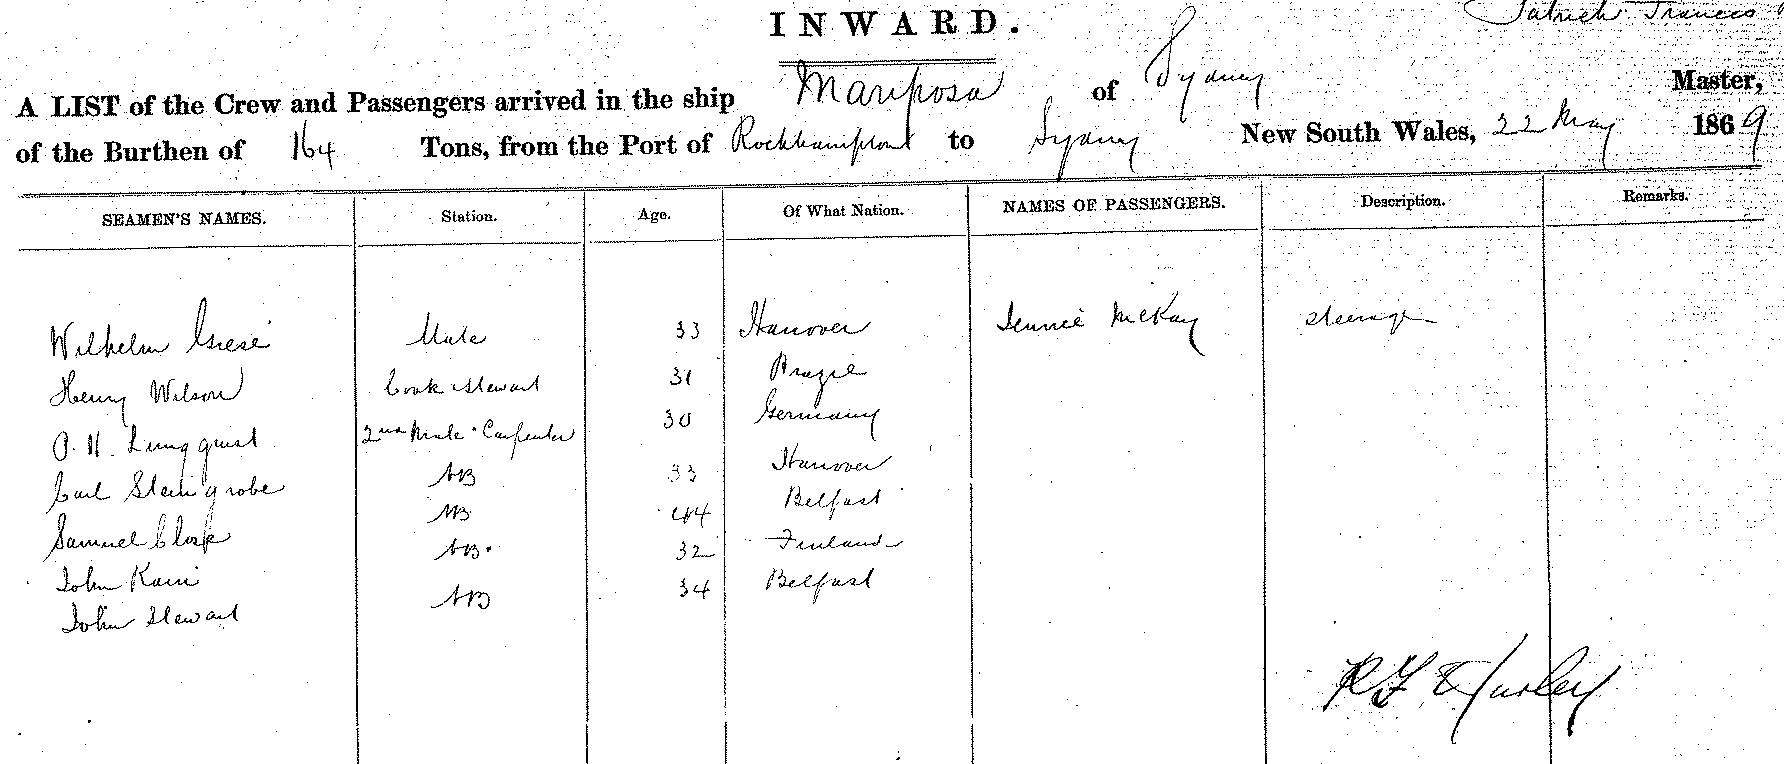 INWARD.
Patrick Francis
A LIST of the Crew and Passengers arrived in the ship Mariposa of Sydney Master,
of the Burthen of 164 Tons, from the Port of Rockhampton to Sydney New South Wales, 22 May 1869
SEAMEN'S NAMES. Station. Age. Of What Nation. NAMES OF PASSENGERS. Description. Remarks.
Wilhelm Giese Mate 33 Hanover Jennie McKay steerage
Henry Wilson Cook & Stewart 31 Brazil
P. H. Lungquist 2nd Mate & Carpenter 30 Germany
Carl Steingrobe AB 33 Hanover
Samuel Clark AB 44 Belfast
John Kari AB. 32 Finland
John Stewart AB 34 Belfast